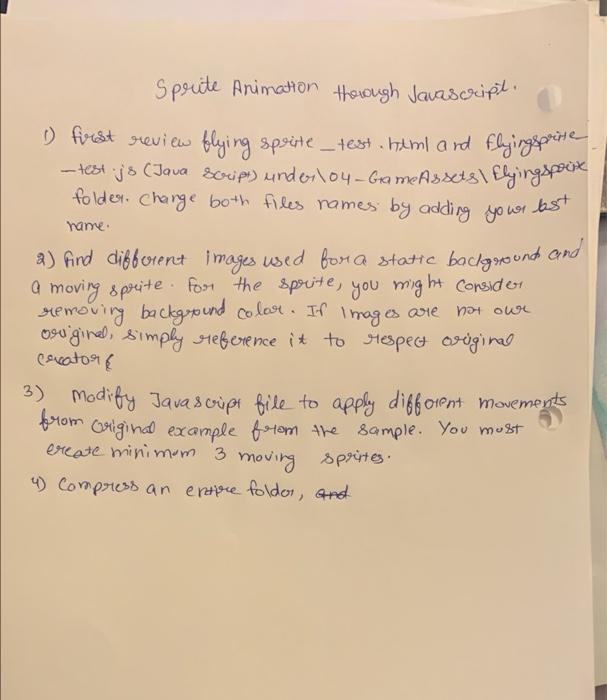 Sprite Animation through Javascript.
1) first review flying sprite_test.html and flyingsprite
-test.js (Java Script) under \04-GameAssets\flyingsprite
folder. Change both files names by adding your last
name.
2) find different images used for a static background and
a moving sprite. For the sprite, you might consider
removing background color. If Images are not our
original, simply reference it to respect original
creator
3) Modify Javascript file to apply different movements
from original example from the sample. You must
create minimum 3 moving sprites.
4) Compress an entire folder, and